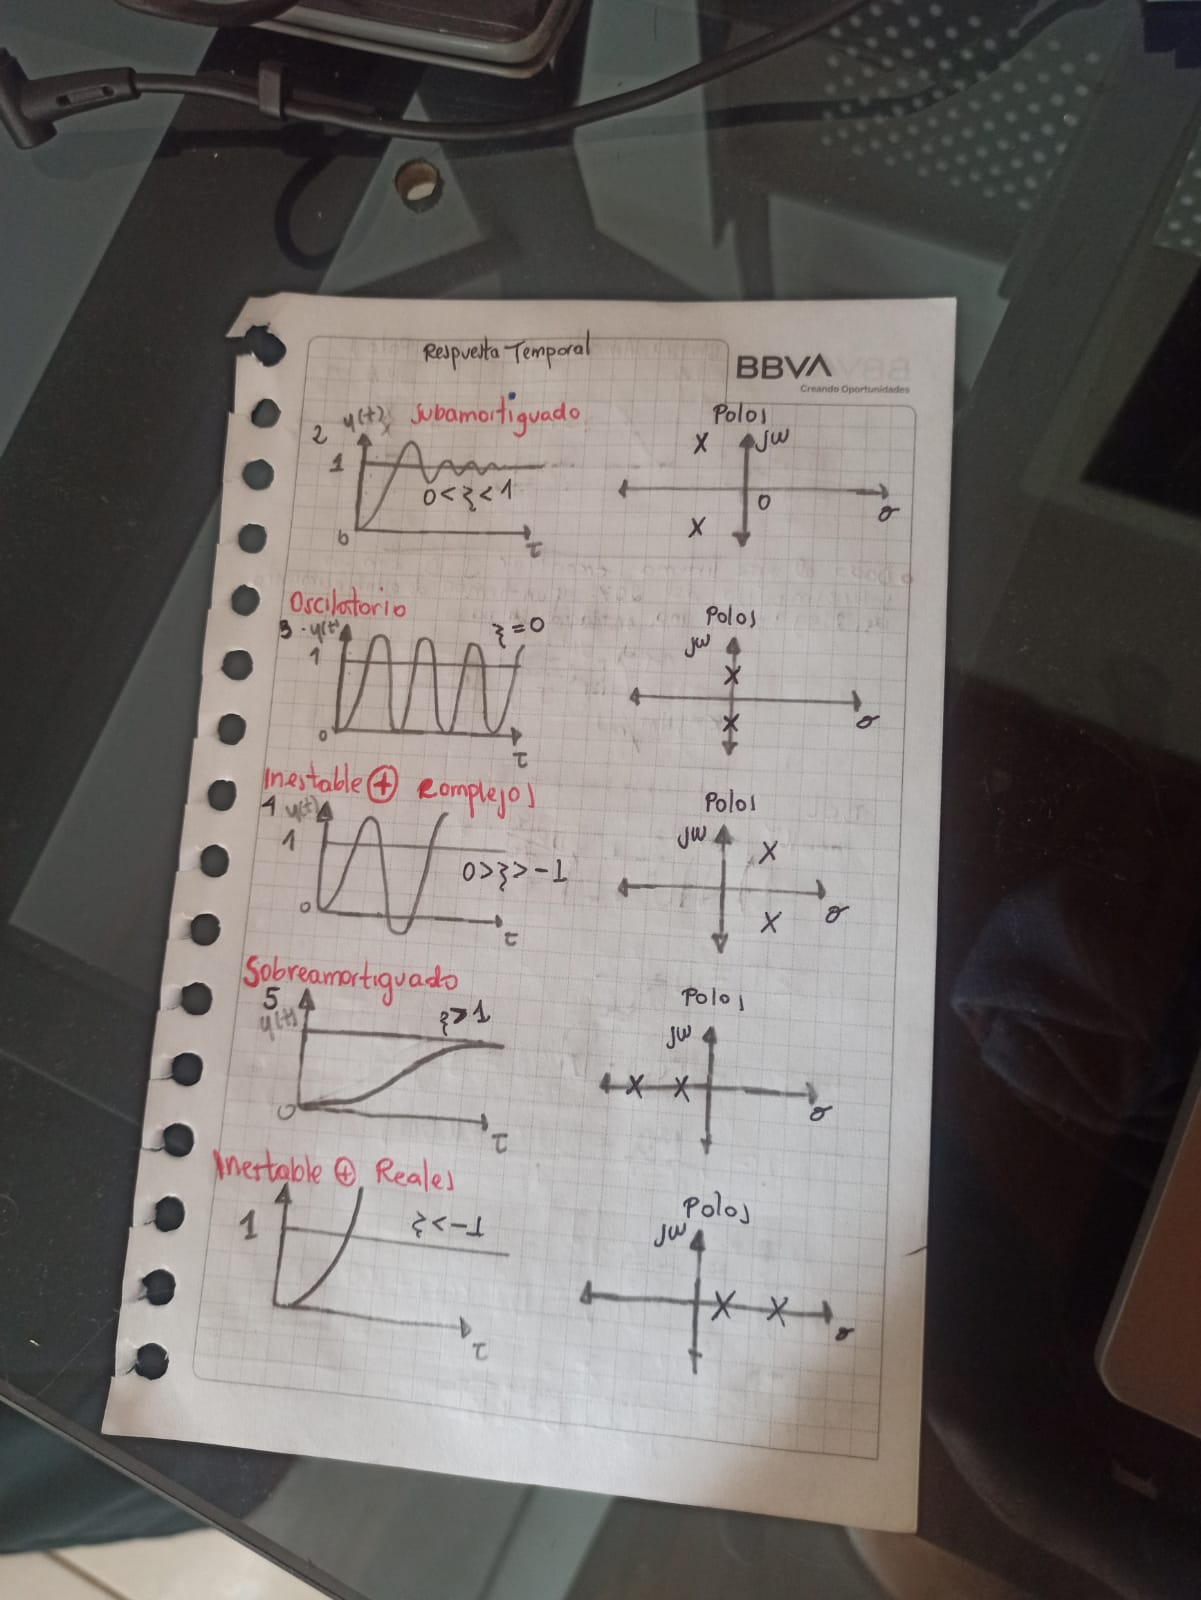 Respuesta Temporal
BBVA
Creando Oportunidades
2 y(t) Subamortiguado
1
0<ξ<1
0
τ
Polos
x jω
0
σ
x
Oscilatorio
3 y(t)
1
ξ=0
0
τ
Polos
jω
x
σ
x
Inestable ⊕ Complejos
4 y(t)
1
0>ξ>-1
0
τ
Polos
jω
x
σ
x
Sobreamortiguado
5
y(t)
ξ>1
0
τ
Polos
jω
x x
σ
Inestable ⊕ Reales
1
ξ<-1
τ
Polos
jω
x x
σ